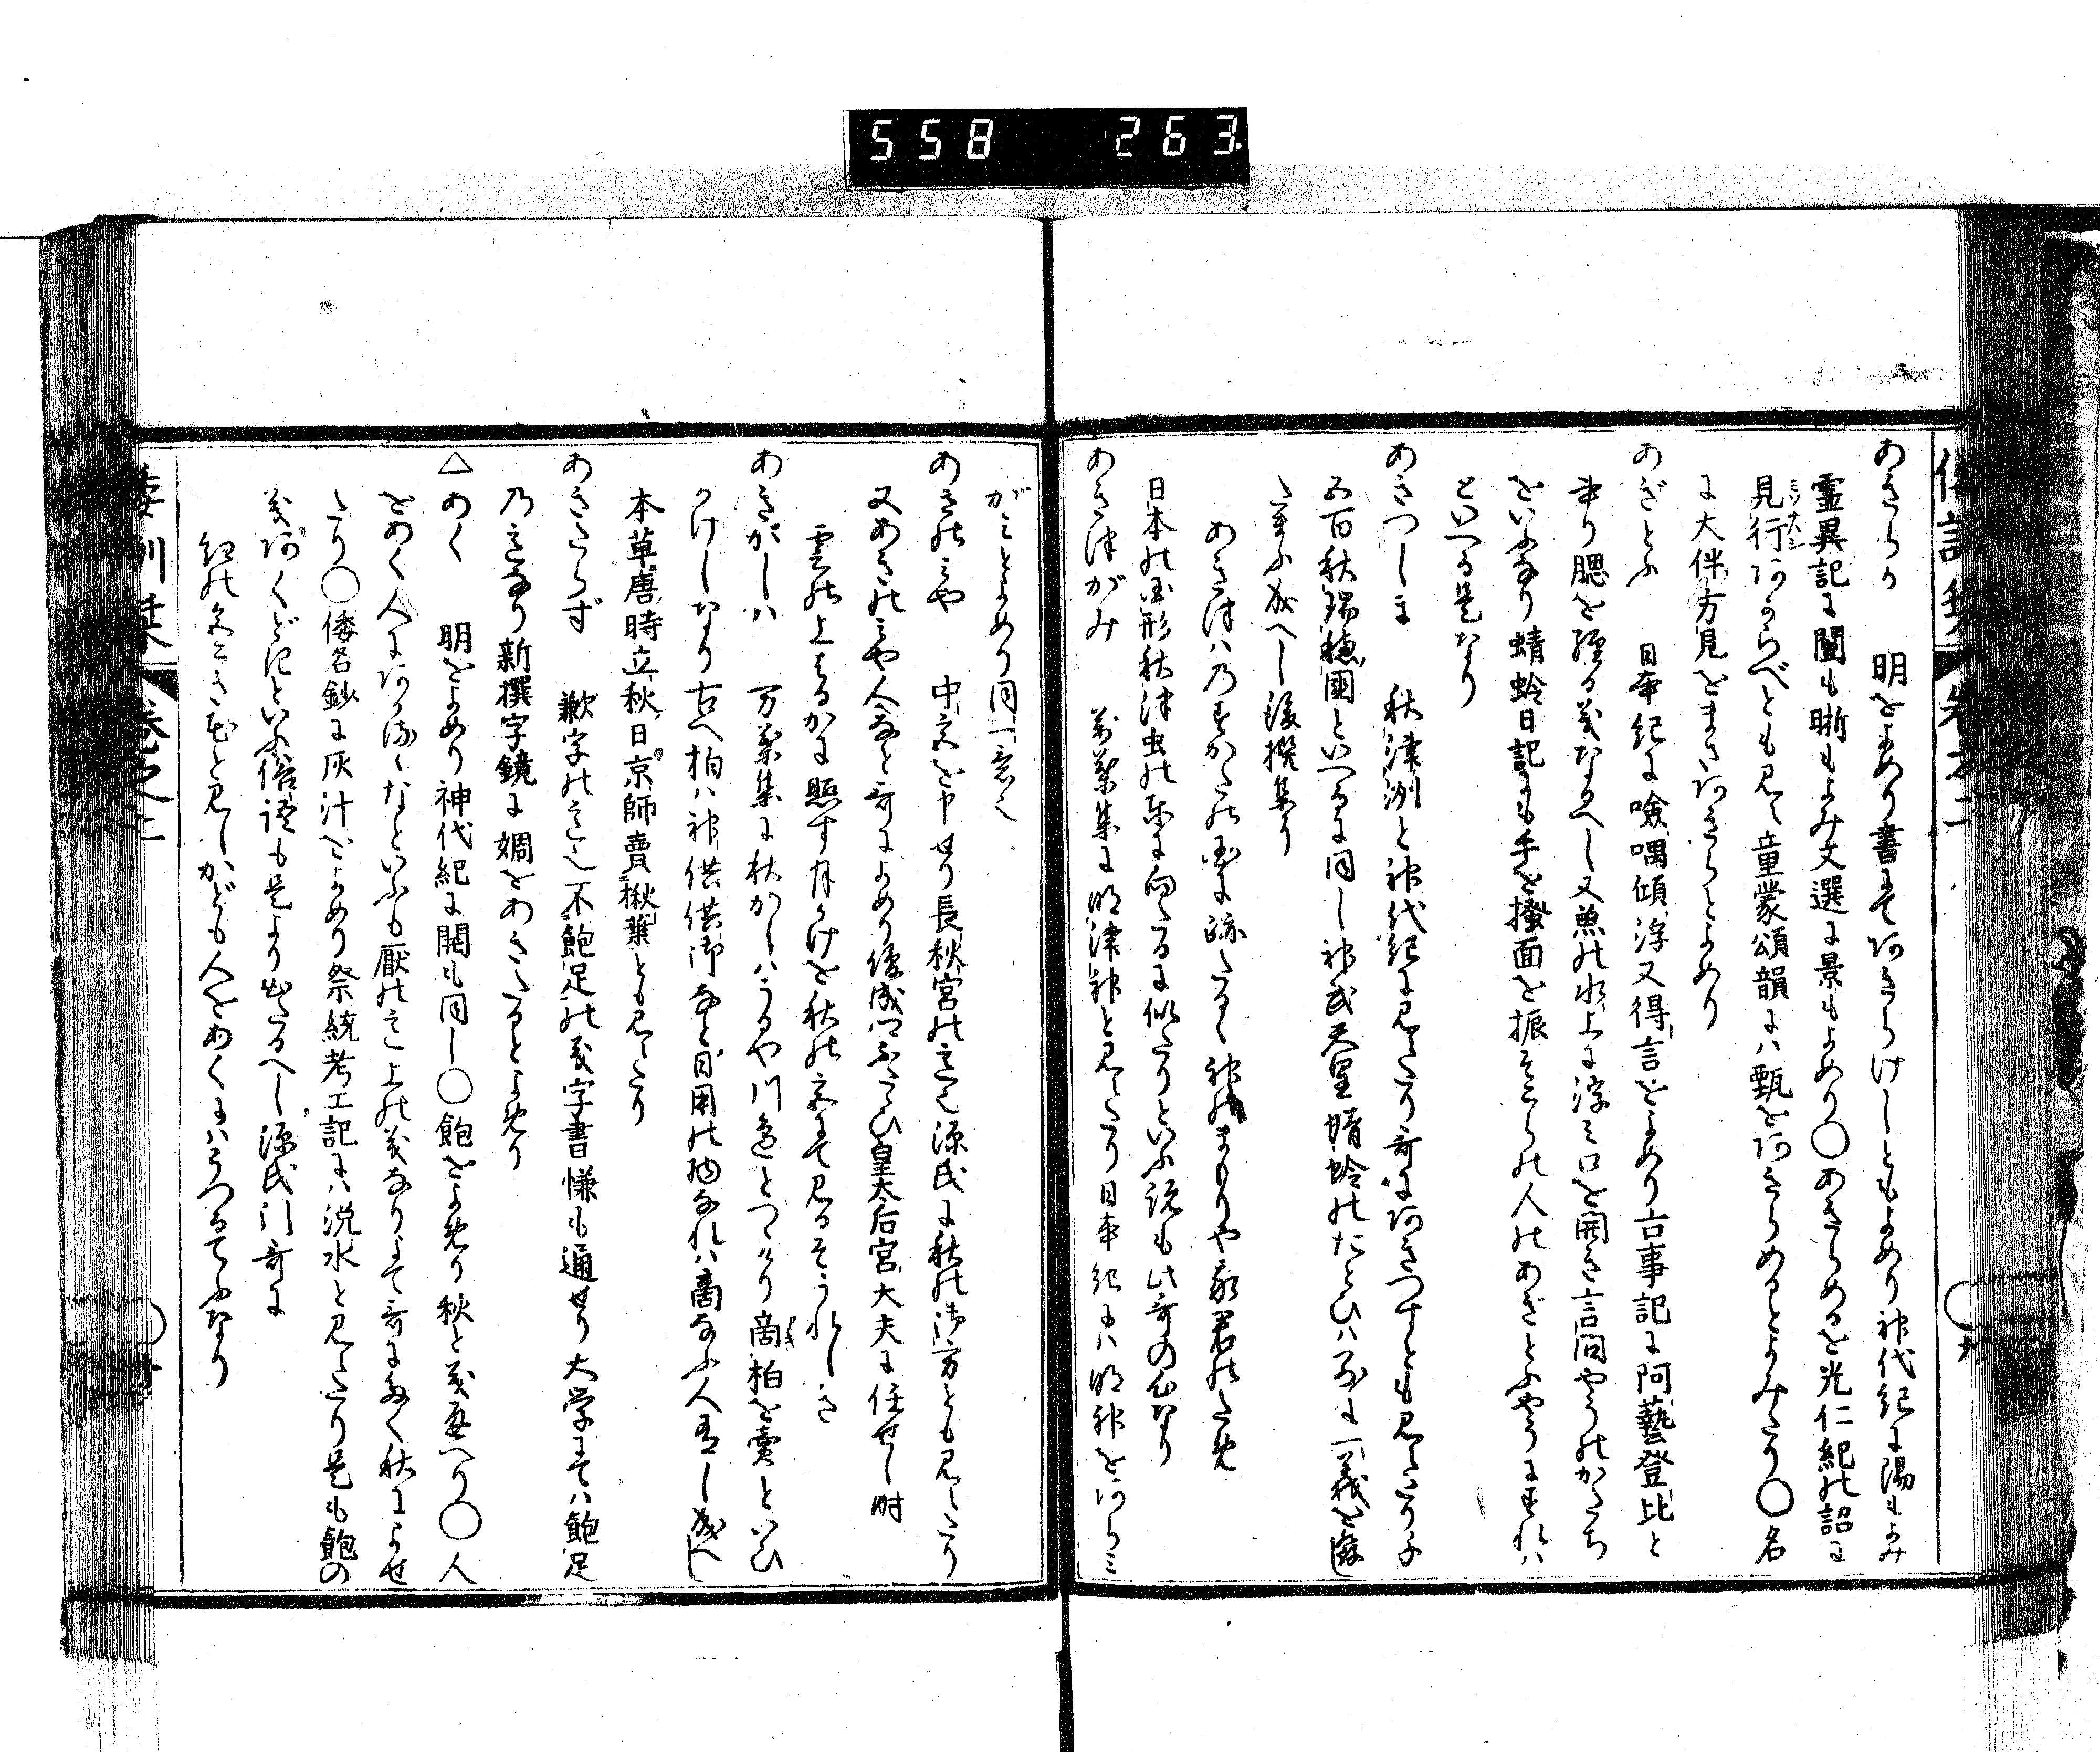 558 263
あきらか 明をよめり書にてあきらけしともよめり神代紀に陽もよみ
霊異記に闓も晣もよみ文選に景もよめり○あきらめるを光仁紀の詔に
見行あからべとも見ゆ童蒙頌韻にハ甄をあきらめるとよみたり○名
に大伴方見をまさあきらとよめり
あぎとふ 日本紀に噞喁傾浮又得言をよめり古事記に阿藝登比と
あり腮を 義なるへし又魚の水上に浮ミ口を開き言問やうのかたち
をいふなり蜻蛉日記にも手を掻面を振そこらの人のあぎとふやうにすれハ
といへる是なり
あきつしま 秋津洲と神代紀に見えたり哥にあきつすとも見えたり千
五百秋瑞穂國といへるに同し神武天皇蜻蛉のたとひハ別に一義を
たまふ成へし後撰集に
あきつハ乃すかたの国に跡たるゝ神のまもりや我君のため
日本の国形秋津虫の東に向たるに似たりといふ説も此哥の心なり
あき津がみ 万葉集に明津神と見えたり日本紀にハ明神をあらミ
がミとよめり同一意也
あきのミや 中宮を申せり長秋宮の意也源氏に秋の御方とも見えたり
又あきのミや人なと哥によめり俊成 皇太后宮大夫に任せし時
雲の上はるかに照す月かけを秋の宮にて見るそうれしき
あきがしハ 万葉集に秋かしハうるや川邉とつゝけり商柏を賣といひ
かけしなり古へ柏ハ神供供御なと日用の物なれハ商なふ人有し成へし
本草唐時立秋日京師賣楸葉とも見えたり
あきたらず 歉字の意也不飽足の義字書慊も通せり大学にてハ飽足
乃意なり新撰字鏡に婤をあきたるとよめり
△あく 明をよめり神代紀に開も同し○飽をよめり秋と義通へり○人
をあく人にあかるゝなといふも厭の意上の義なりよて哥に多く秋によせ
たり○倭名鈔に灰汁をよめり祭統考工記にハ涗水と見えたり是も飽の
義 あくどきといふ俗語も是より出たるへし源氏の哥に
紅の色こき花と見しかども人をあくにハうつるてふなり
倭訓栞 巻之二